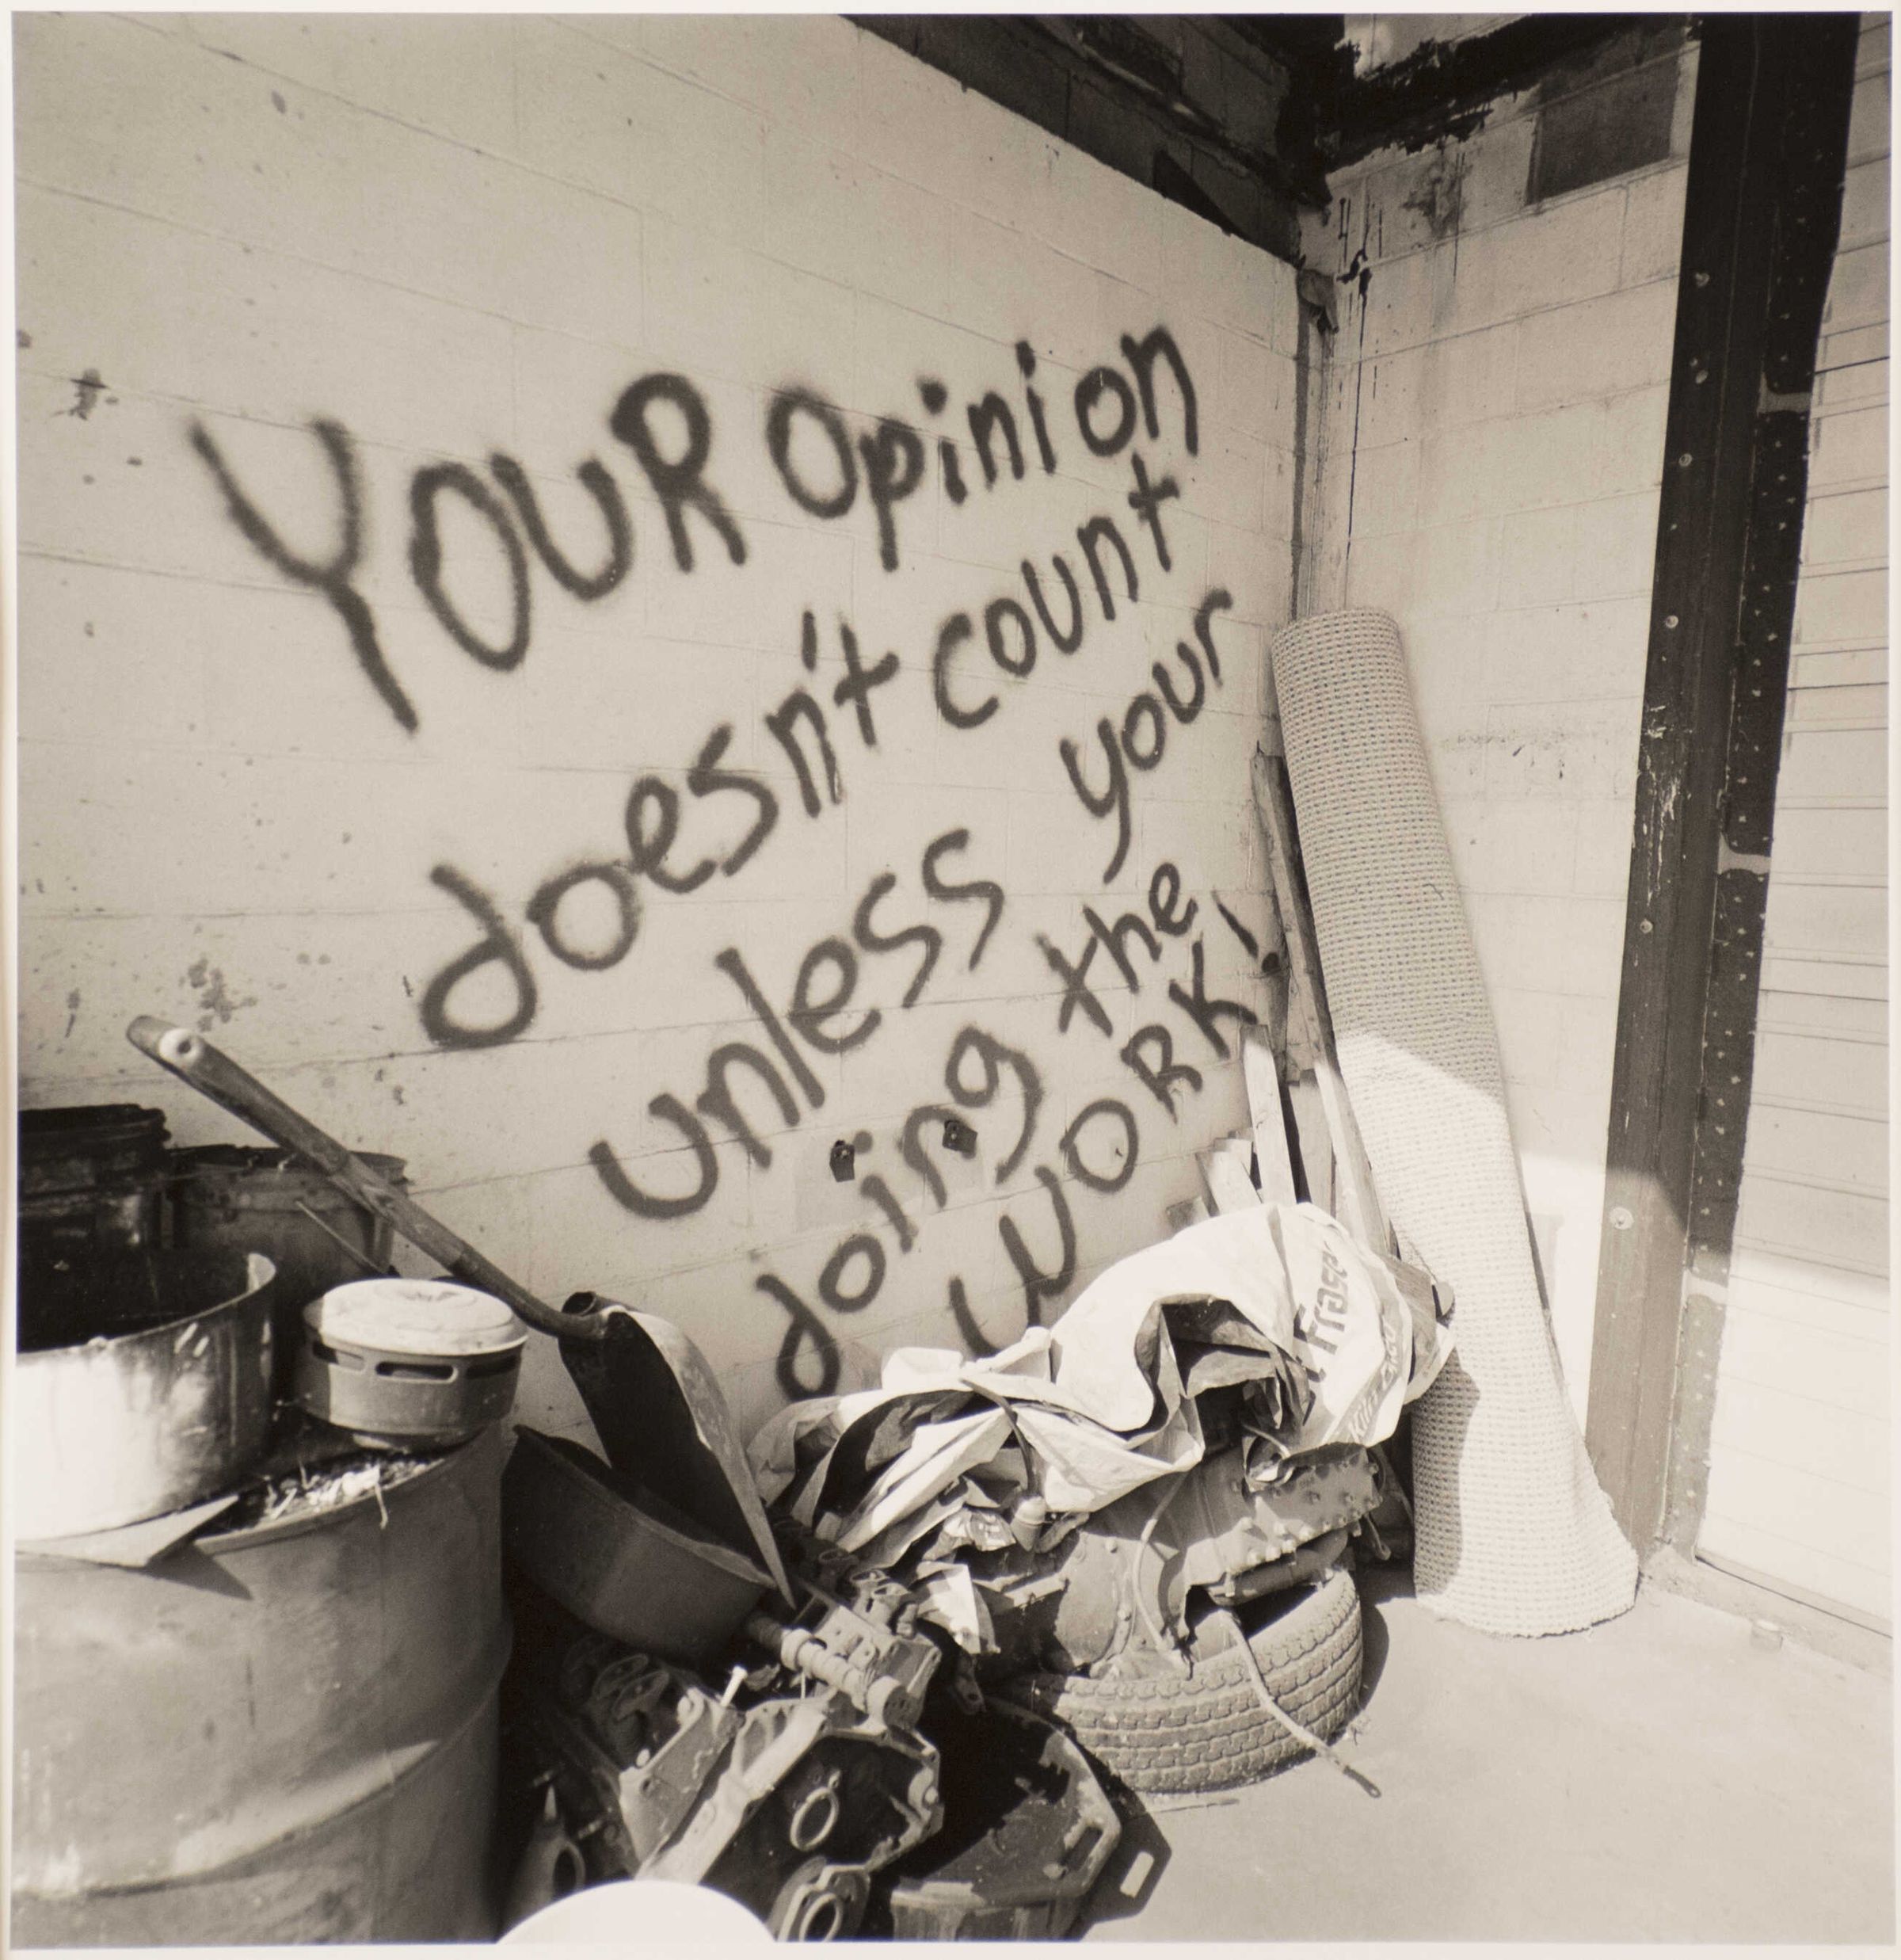 YOUR Opinion
doesn't count
unless your
doing the
WORK!
Fraser